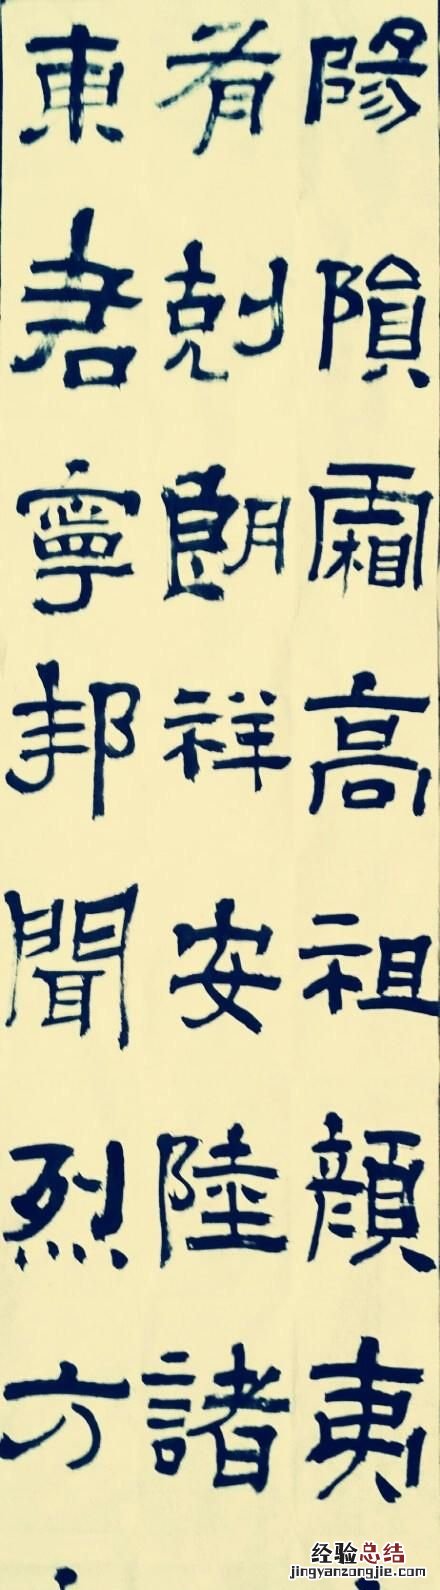 陽隕霜高祖顔夷
剋朗祥安陸諸
東君寧邦聞烈方
经验总结
jingyanzongjie.com